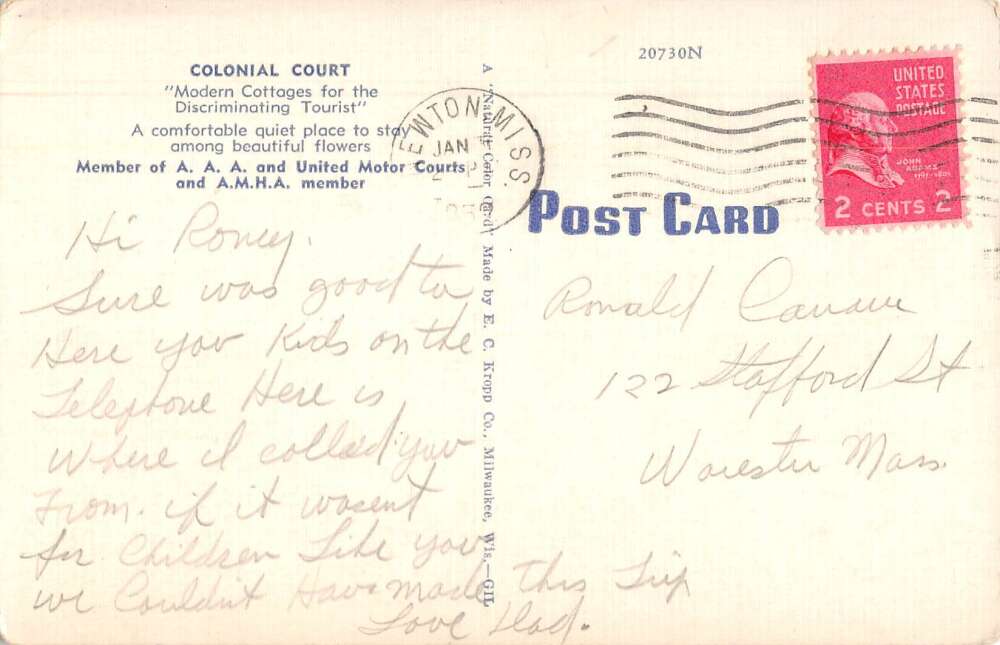 COLONIAL COURT
"Modern Cottages for the
Discriminating Tourist"
A comfortable quiet place to stay
among beautiful flowers
Member of A. A. A. and United Motor Courts
and A.M.H.A. member
Hi Roney.
Sure was good to
Here you Kids on the
Telephone Here is
Where I colled you
From. if it wasent
for Children Like you
we Couldnt Have made this Trip
Love Dad.
A "Natural Color Card" Made by E. C. Kropp Co., Milwaukee, Wis.—GIL
20730N
NEWTON MISS.
JAN
POST CARD
UNITED
STATES
POSTAGE
JOHN
ADAMS
2 CENTS 2
Ronald
122 Stafford St
Worester Mass